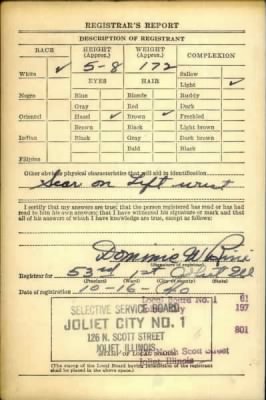 REGISTRAR'S REPORT
DESCRIPTION OF REGISTRANT
RACE HEIGHT (Approx.) WEIGHT (Approx.) COMPLEXION
White ✓ 5-8 172 Sallow
EYES HAIR Light ✓
Negro Blue Blonde Ruddy
Gray Red Dark
Oriental Hazel ✓ Brown ✓ Freckled
Brown Black Light brown
Indian Black Gray Dark brown
Bald Black
Filipino
Other obvious physical characteristics that will aid in identification
Scar on Left wrist
I certify that my answers are true; that the person registered has read or has had
read to him his own answers; that I have witnessed his signature or mark and that
all of his answers of which I have knowledge are true, except as follows:
Dominic W.
(Signature of registrar)
Registrar for 53rd 1st Joliet Ill
(Precinct) (Ward) (City or county) (State)
Date of registration 10-16-40
Local Board No. 1 61
197
801
SELECTIVE SERVICE BOARD
JOLIET CITY NO. 1
126 N. SCOTT STREET
JOLIET, ILLINOIS
(STAMP OF LOCAL BOARD)
(The stamp of the Local Board having jurisdiction of the registrant
shall be placed in the above space)